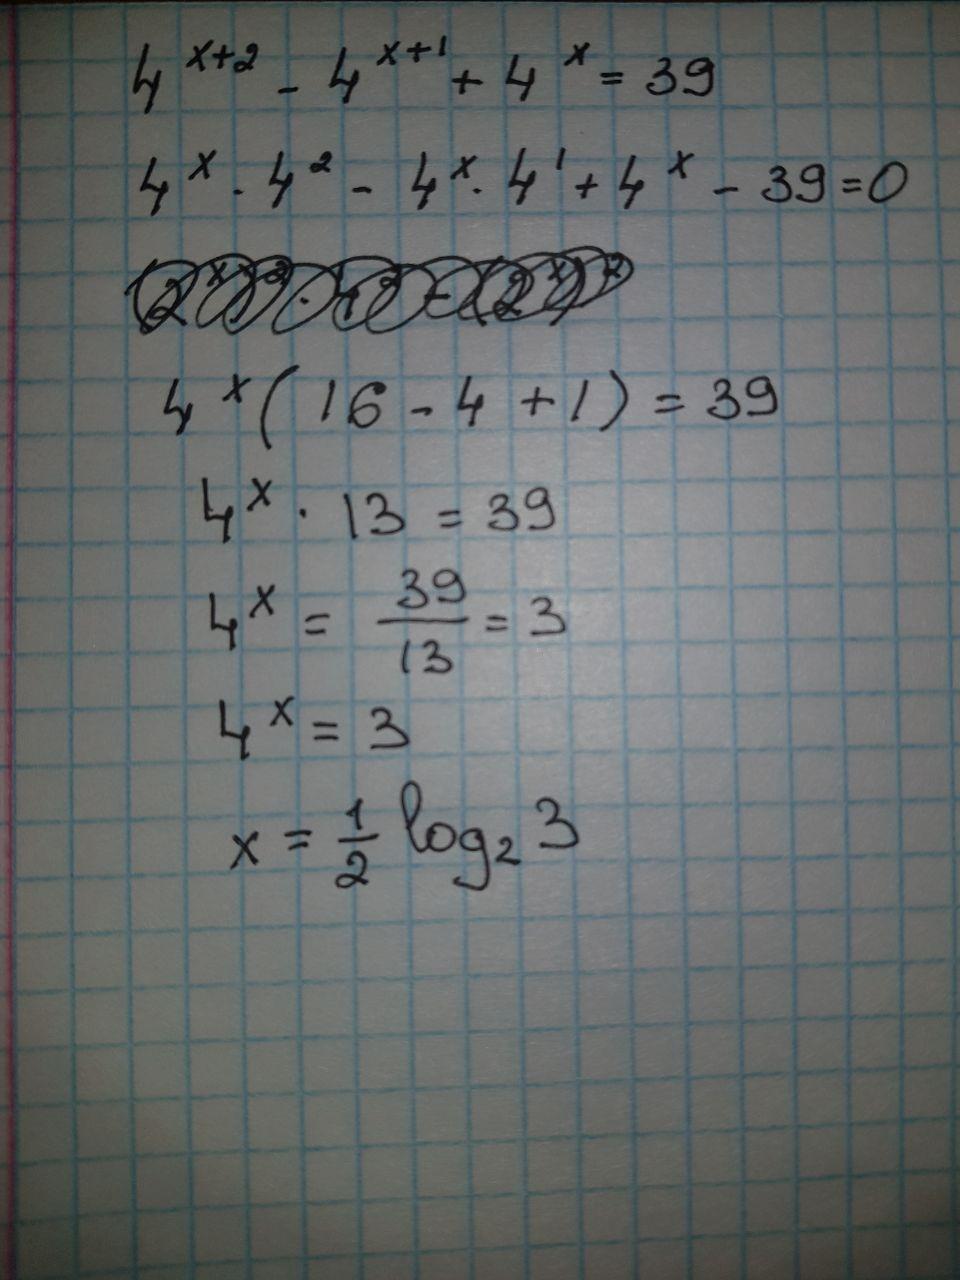 4^{x+2} - 4^{x+1} + 4^x = 39
4^x · 4^2 - 4^x · 4^1 + 4^x - 39 = 0
4^x (16 - 4 + 1) = 39
4^x · 13 = 39
4^x = \frac{39}{13} = 3
4^x = 3
x = \frac{1}{2} log_2 3